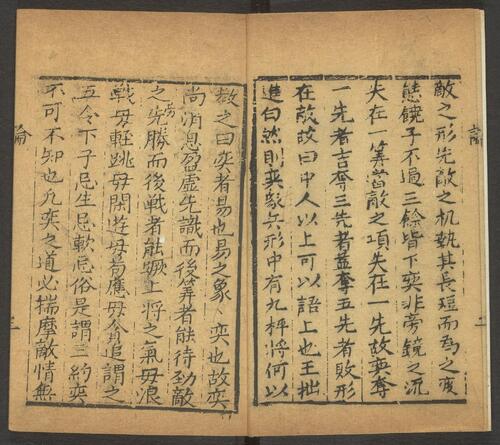 敵之形先敵之机執其長短而爲之變
態饒子不過三餘皆下奕非旁鏡之流
失在一筭當敵之項失在一先故奕奪
一先者吉奪三先者蓋奪五先者敗形
在敵故曰中人以上可以語上也王拙
進曰然則奕象兵形中有九枰將何以
教之曰奕者易也易之象奕也故奕
尚消息盈虛先識而後筭者能待勁敵
之先勝而後戰者能蹶上將之气毋浪
戰毋輕跳毋閑遊毋苟應毋貪追謂之
五令下子忌生忌軟忌俗是謂三約奕
不可不知也凡奕之道必揣摩敵情無
論
二